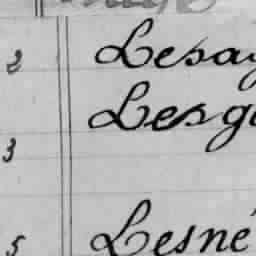 2 Lesay
Lesg
3
5 Lesné